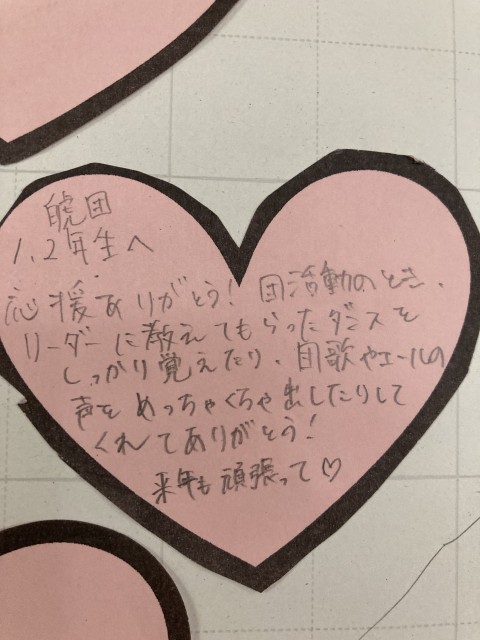 虎団
1,2年生へ
応援ありがとう! 団活動のとき、
リーダーに教えてもらったダンスを
しっかり覚えたり、団歌やエールの
声をめっちゃくちゃ出したりして
くれてありがとう!
来年も頑張って♡